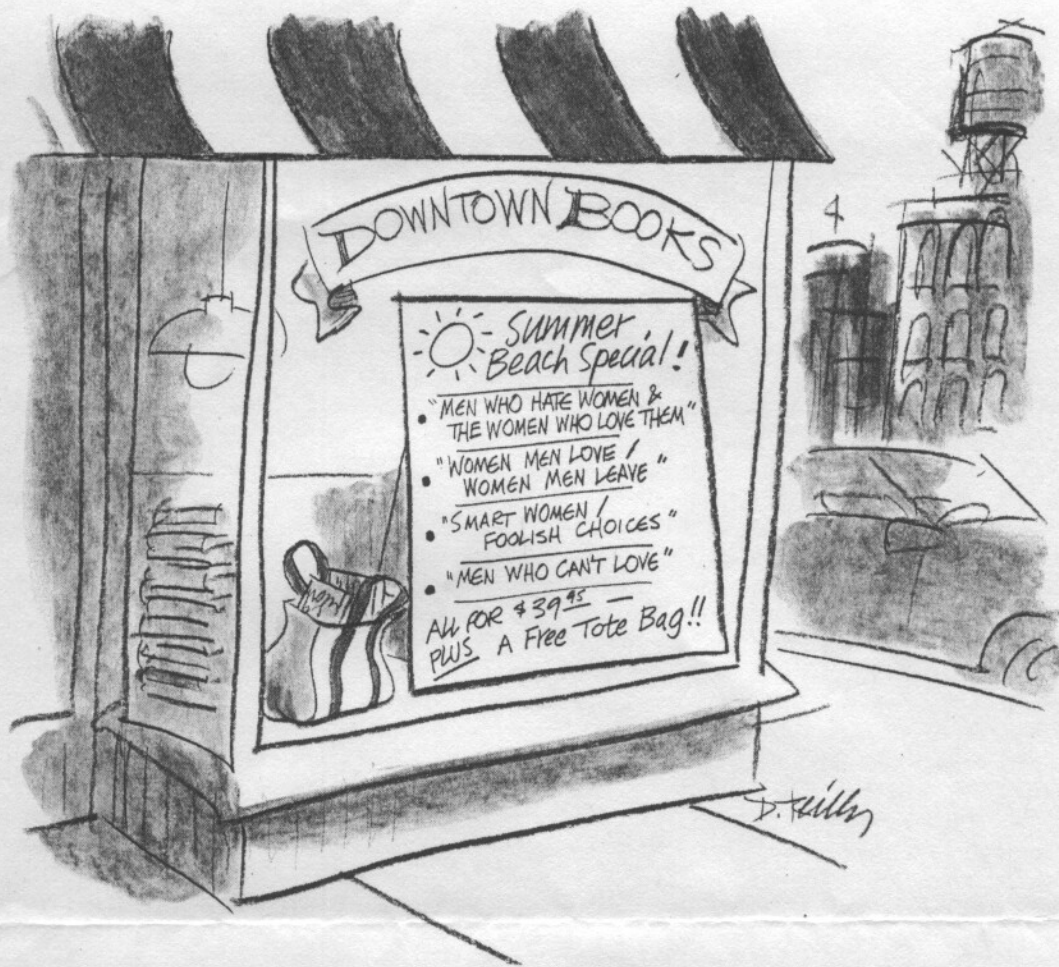 DOWNTOWN BOOKS
Summer
Beach Special!
• "MEN WHO HATE WOMEN &
THE WOMEN WHO LOVE THEM"
• "WOMEN MEN LOVE /
WOMEN MEN LEAVE"
• "SMART WOMEN /
FOOLISH CHOICES"
• "MEN WHO CAN'T LOVE"
ALL FOR $39.95 —
PLUS A Free Tote Bag!!
D. Reilly